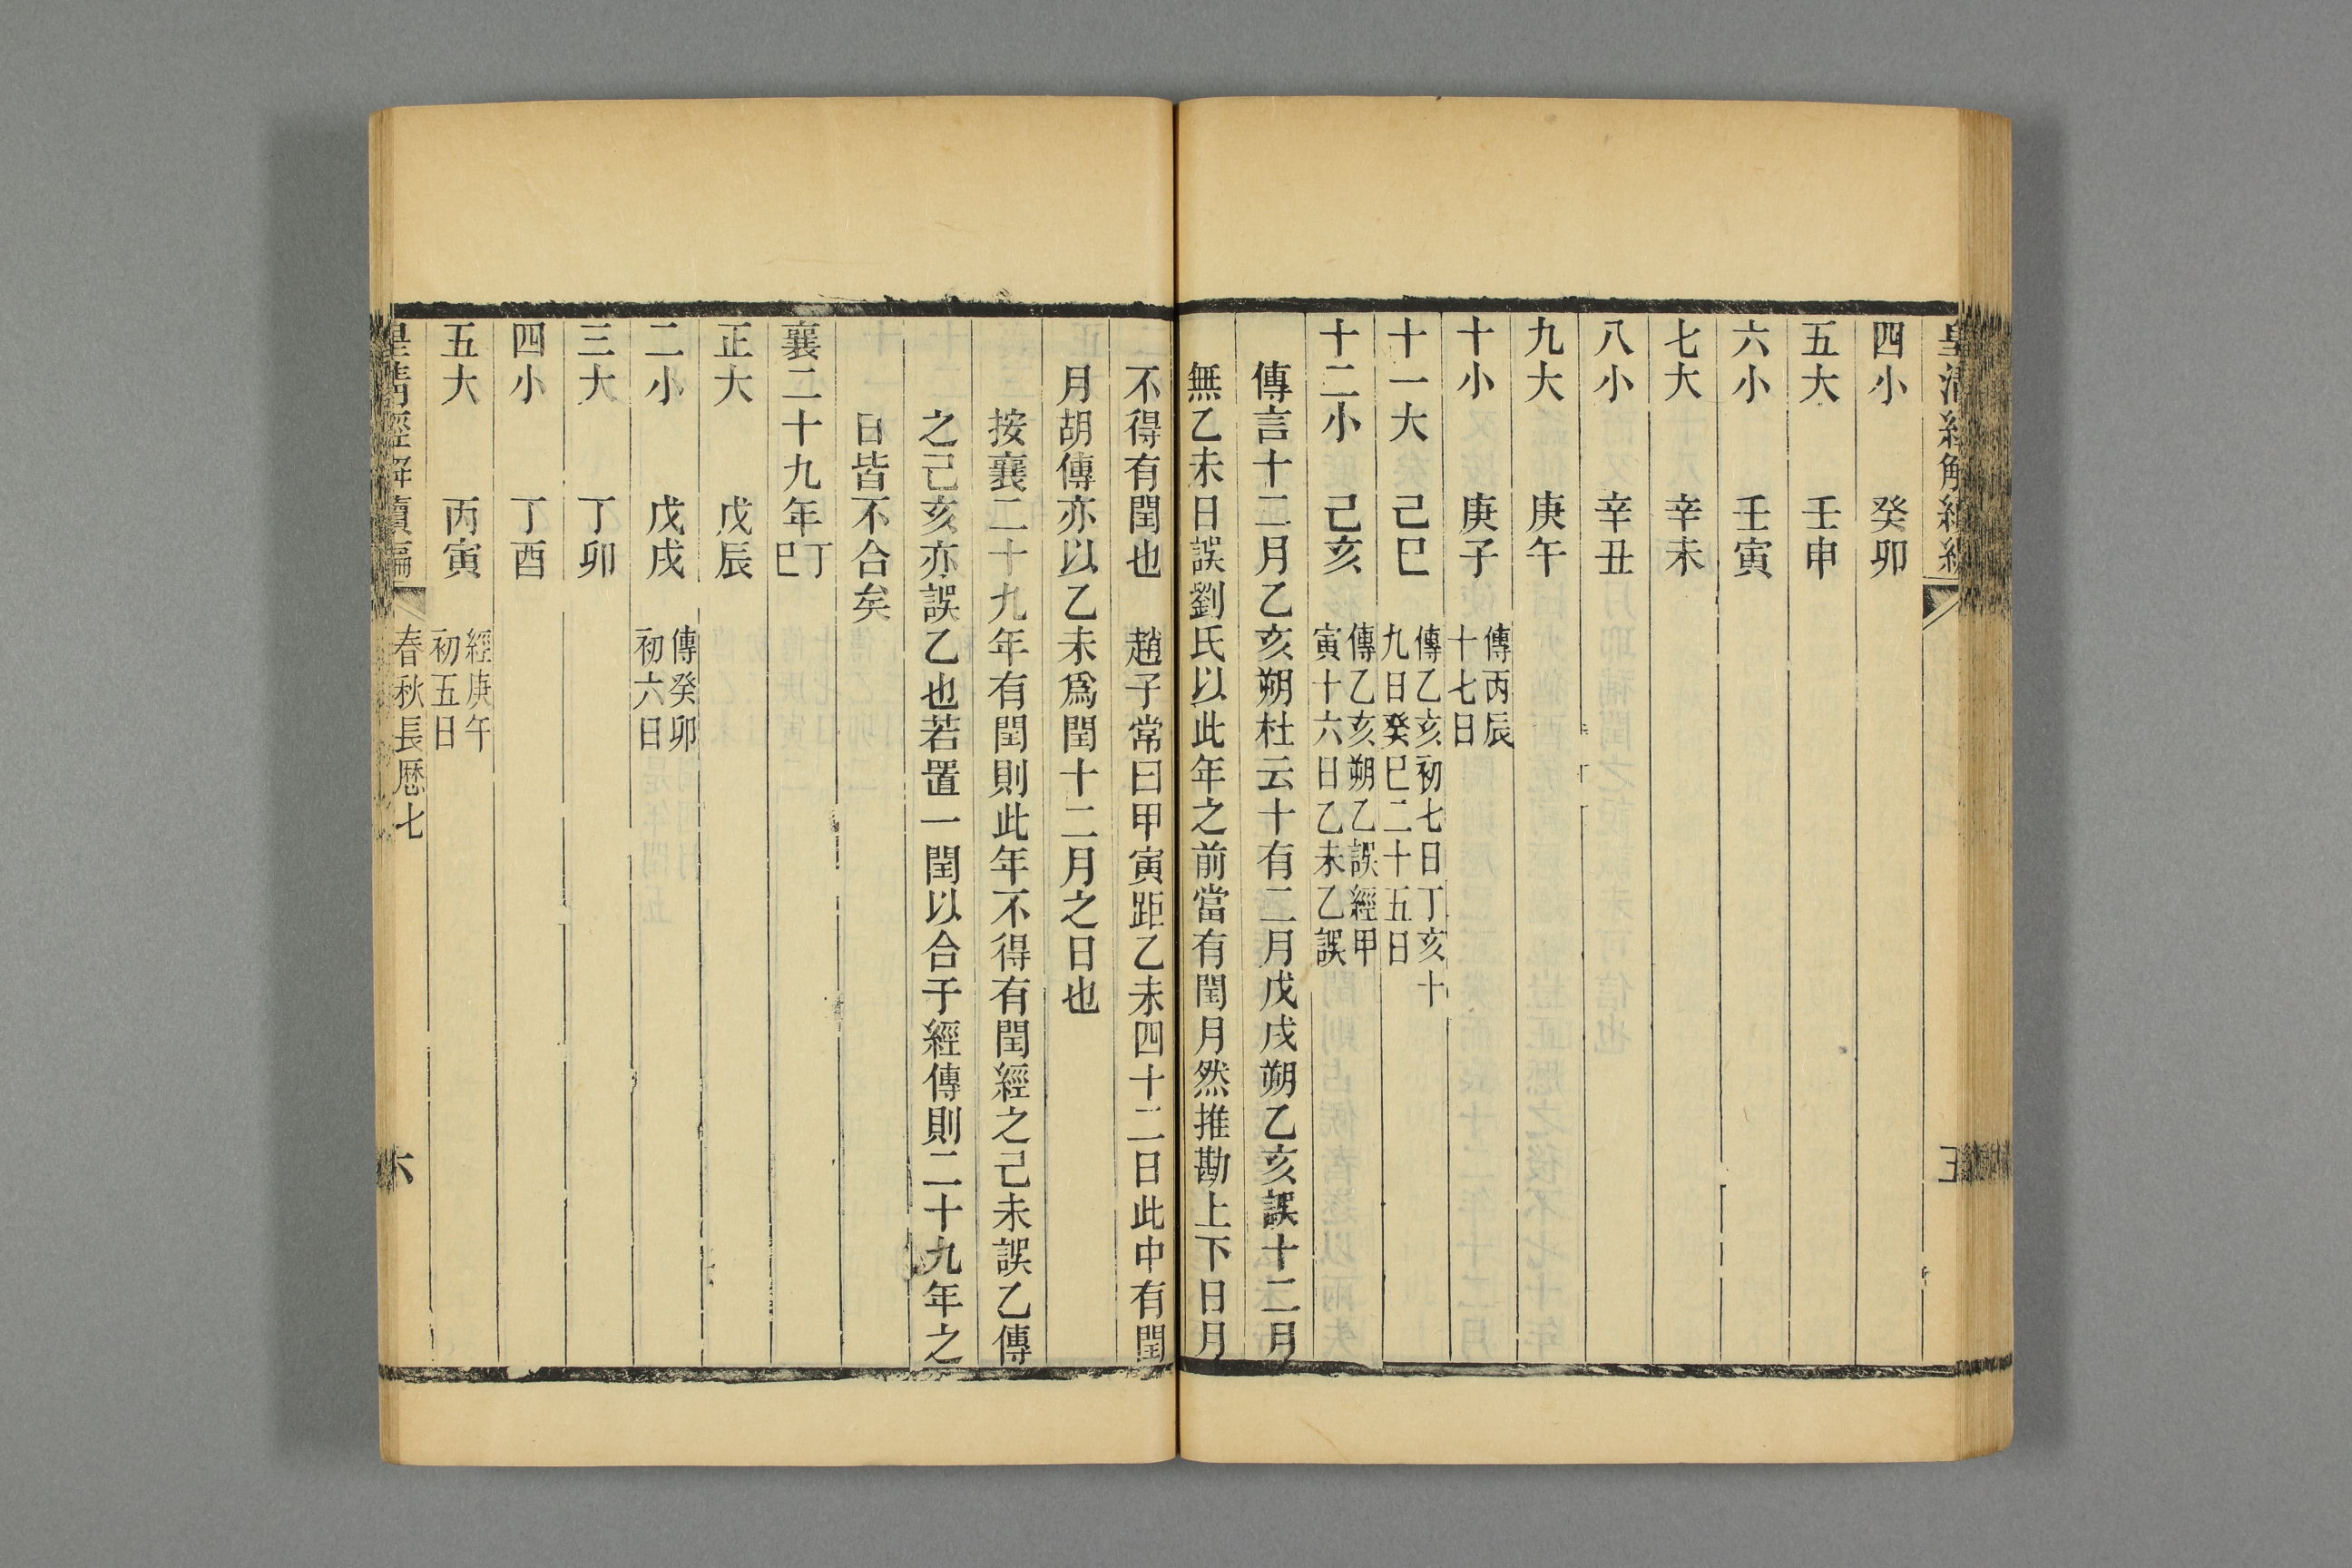 四小 癸卯
五大 壬申
六小 壬寅
七大 辛未
八小 辛丑
九大 庚午
十小 庚子 傳丙辰
十七日
十一大 己巳 傳乙亥初七日丁亥十
九日癸巳二十五日
十二小 己亥 傳乙亥朔乙誤經甲
寅十六日乙未乙誤
傳言十二月乙亥朔杜云十有二月戊戌朔乙亥誤十二月
無乙未日誤劉氏以此年之前當有閏月然推勘上下日月
不得有閏也 趙子常曰甲寅距乙未四十二日此中有閏
月胡傳亦以乙未爲閏十二月之日也
按襄二十九年有閏則此年不得有閏經之己未誤乙傳
之己亥亦誤乙也若置一閏以合于經傳則二十九年之
日皆不合矣
襄二十九年丁
巳
正大 戊辰
二小 戊戌 傳癸卯
初六日
三大 丁卯
四小 丁酉
五大 丙寅 經庚午
初五日
皇清經解續編 春秋長厯七 六